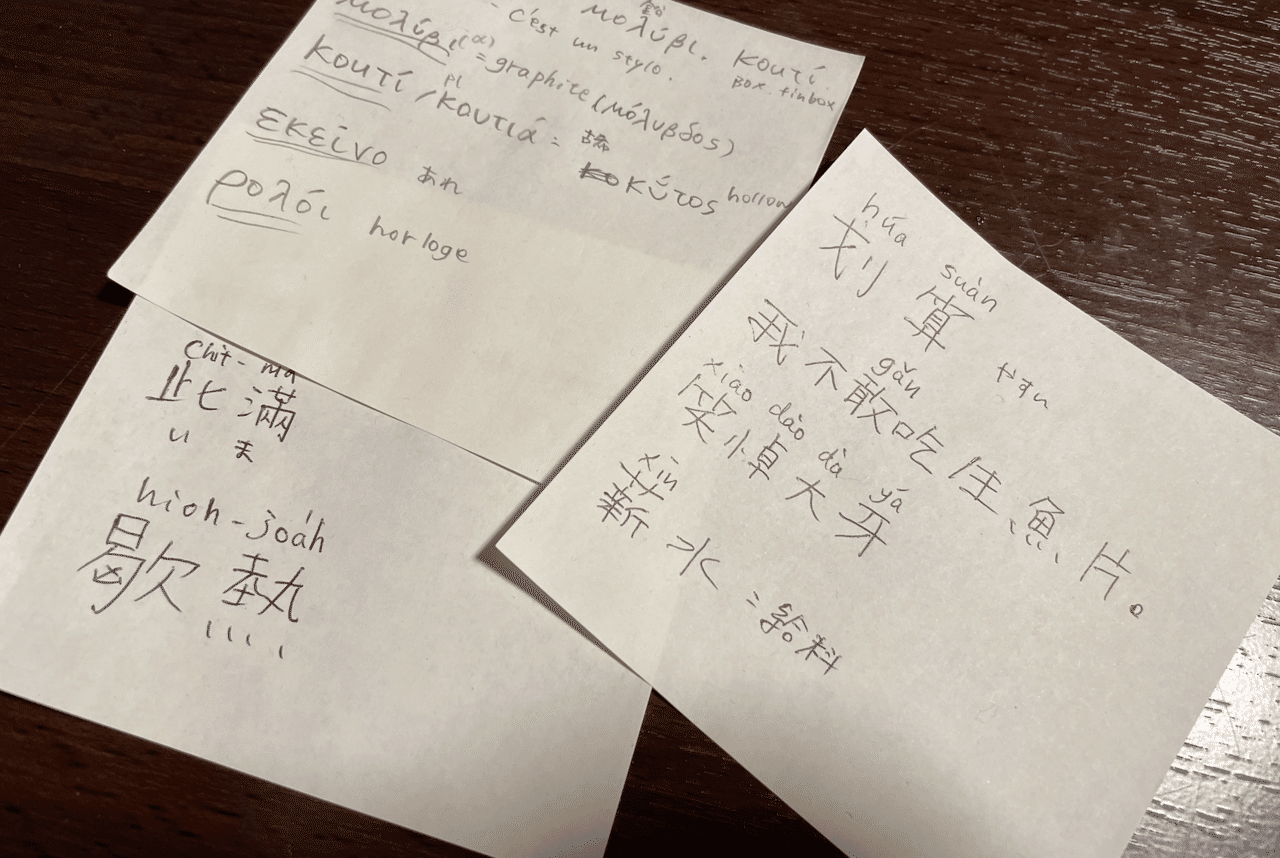 - c'est un stylo.
μολύβι. κουτί
box. tinbox
μολύβι(α) = graphite (μόλυβδος)
κουτί / κουτιά = 古希
pl
κύτος hollow
εκείνο あれ
ρολόι horloge
chit-má
此滿
いま
hioh-joáh
歇熱
húa suàn
划算
gǎn
我不敢吃生魚片。
xiào dào dà yá
笑悼大牙
xīn
薪水 = 給料